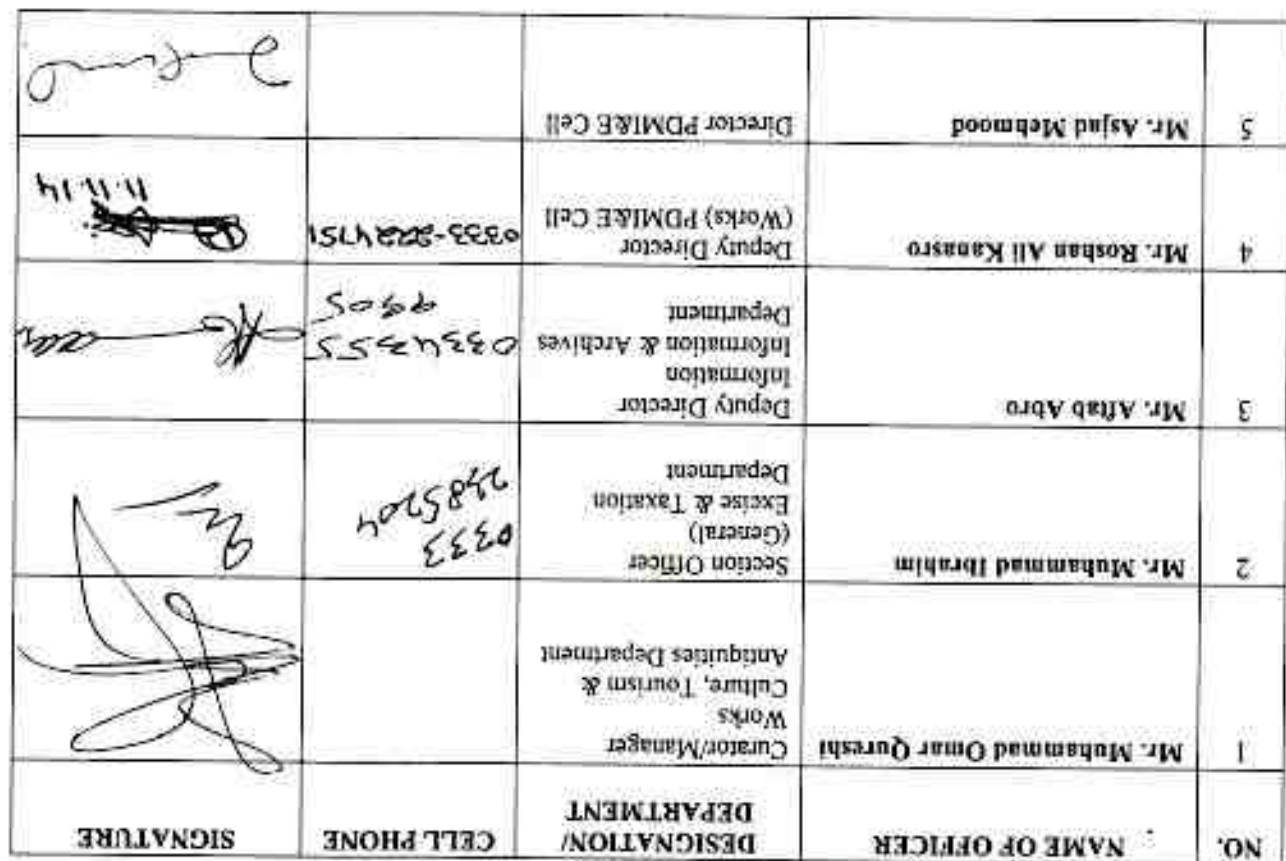 NO.
NAME OF OFFICER
DESIGNATION/
DEPARTMENT
CELL PHONE
SIGNATURE
1
Mr. Muhammad Omar Qureshi
Curator/Manager
Works
Culture, Tourism &
Antiquities Department
2
Mr. Muhammad Ibrahim
Section Officer
(General)
Excise & Taxation
Department
0333
3
Mr. Aftab Abro
Deputy Director
Information
Information & Archives
Department
03343355
9905
4
Mr. Roshan Ali Kanasro
Deputy Director
(Works) PDMI&E Cell
0333-2224751
11.11.14
5
Mr. Asjad Mehmood
Director PDMI&E Cell